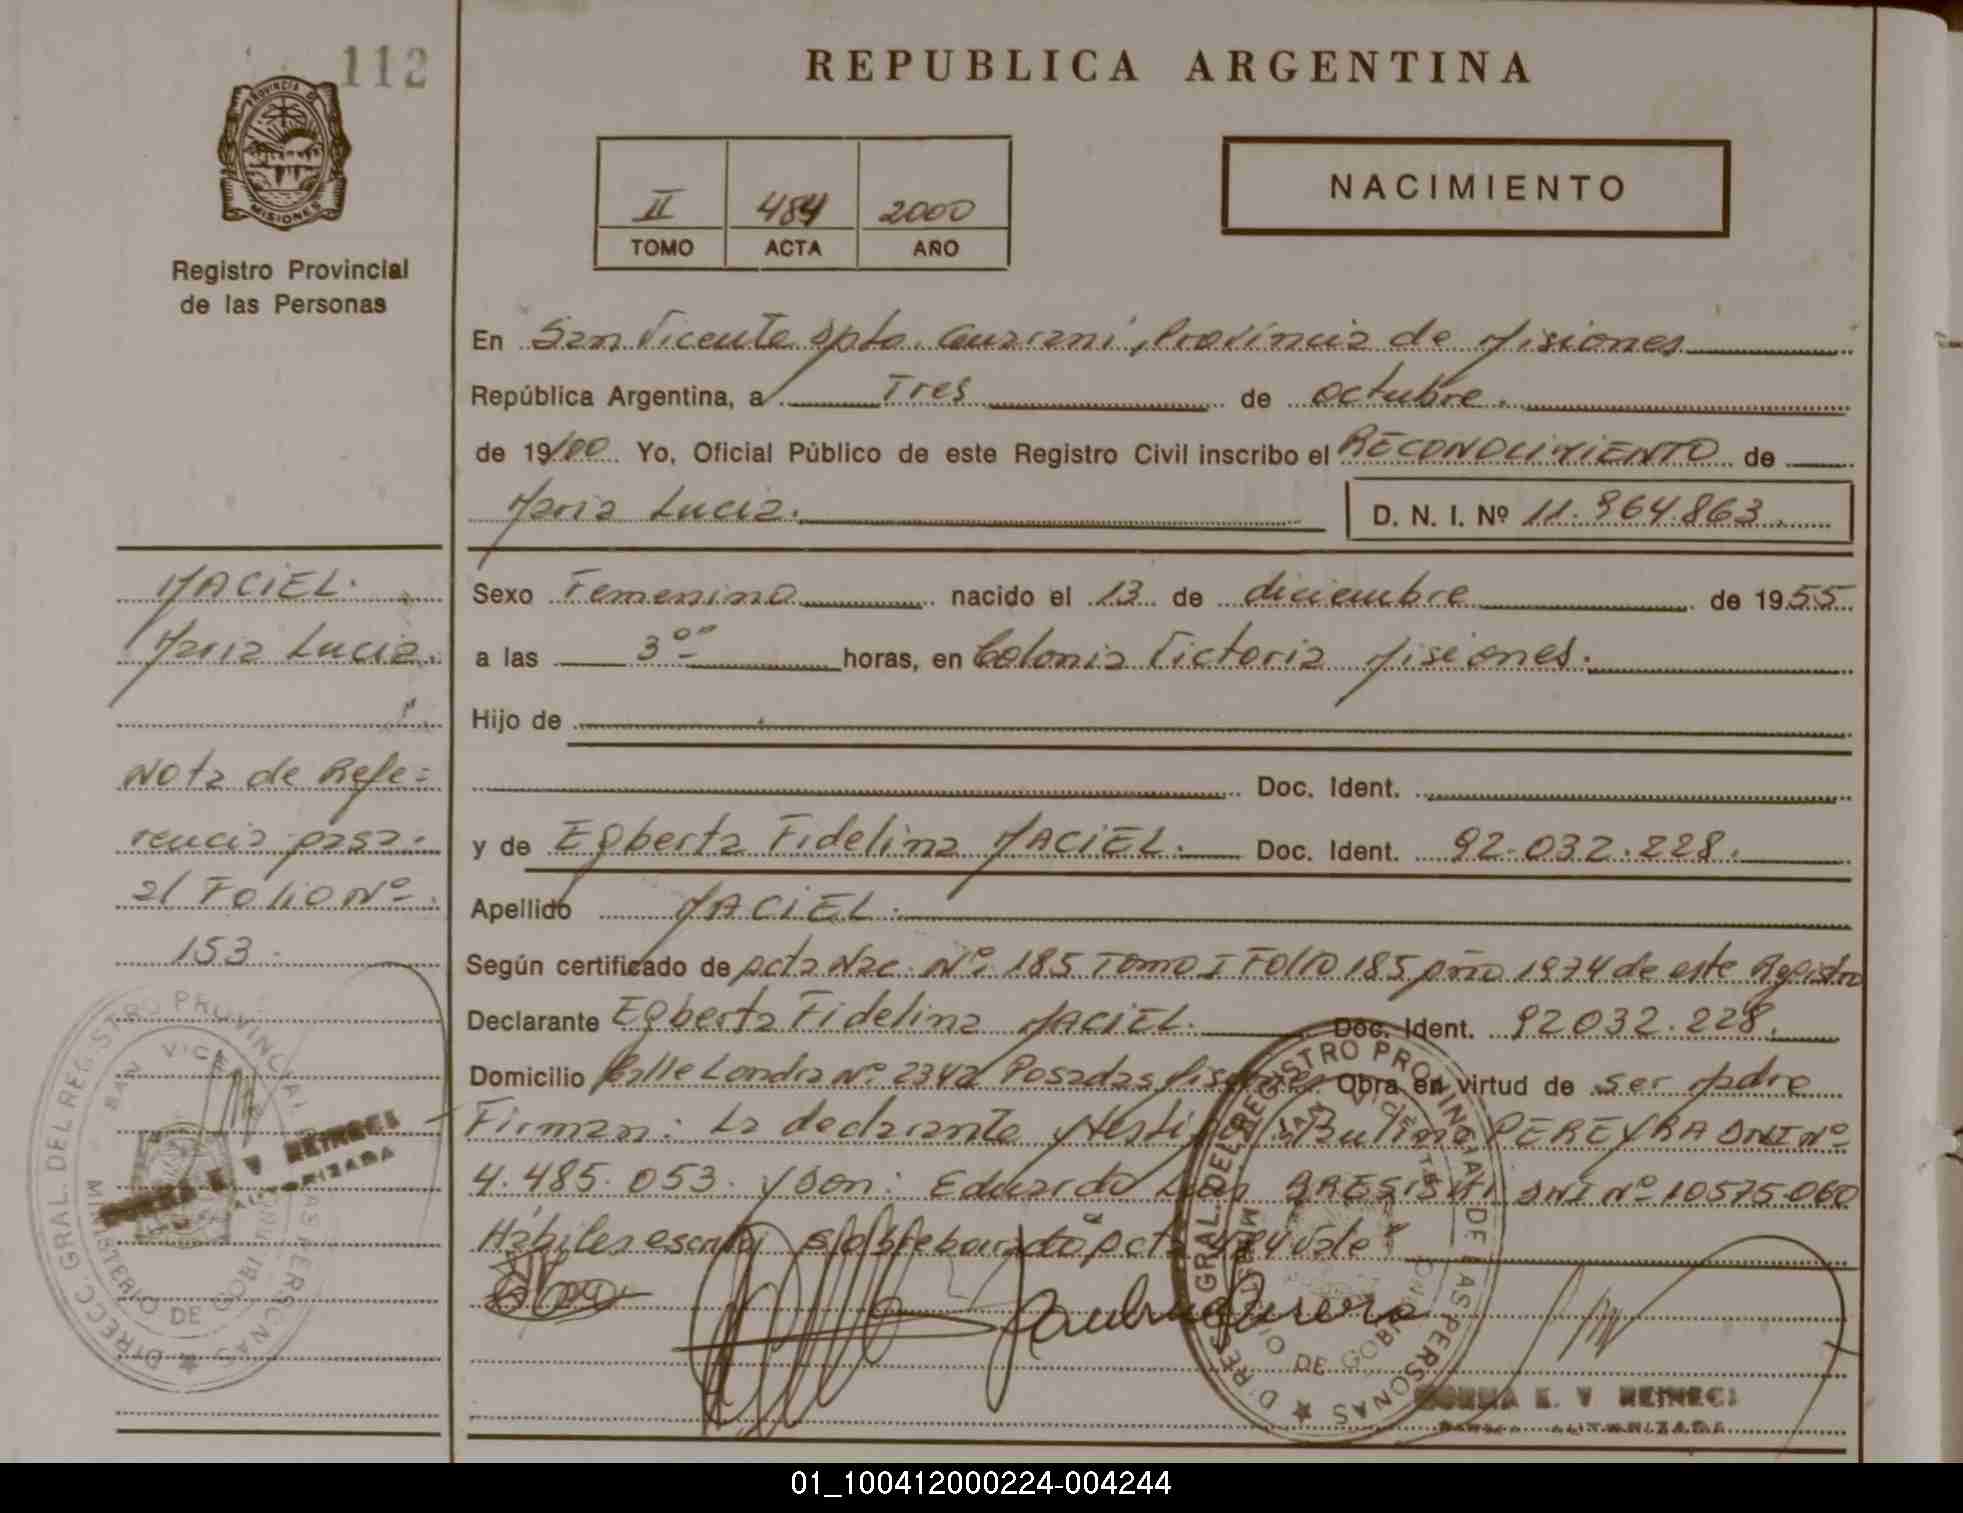 112
REPUBLICA ARGENTINA
PROVINCIA DE
MISIONES
Registro Provincial
de las Personas
II 484 2000
TOMO ACTA AÑO
NACIMIENTO
En San Vicente Dpto. Guarani, Provincia de Misiones
República Argentina, a Tres de octubre.
de 19/00 Yo, Oficial Público de este Registro Civil inscribo el RECONOCIMIENTO de
Maria Lucia. D. N. I. Nº 11.964.863.
MACIEL.
Maria Lucia.
Nota de Refe=
rencia pasa
al Folio Nº
153.
Sexo Femenino nacido el 13 de diciembre de 1955
a las 3 00 horas, en Colonia Victoria Misiones.
Hijo de
Doc. Ident.
y de Egberta Fidelina MACIEL. Doc. Ident. 92.032.228.
Apellido MACIEL.
Según certificado de Acta Nac. Nº 185 Tomo I Folio 185 año 1974 de este Registro
Declarante Egberta Fidelina MACIEL. Doc. Ident. 92032.228.
Domicilio Calle Nº 2342 Posadas Obra en virtud de ser Madre
Firman: La declarante PEREYRA DNI Nº
4.485.053. y Don: Eduardo DNI Nº 10575.060
Hábiles
DIRECC. GRAL. DEL REGISTRO PROVINCIAL DE LAS PERSONAS
SAN VICENTE
MINISTERIO DE GOBIERNO
E. V REINECI
AUTORIZADA
DIRECC. GRAL. DEL REGISTRO PROVINCIAL DE LAS PERSONAS
SAN VICENTE
DE
NORMA E. V REINECI
AUTORIZADA
01_100412000224-004244